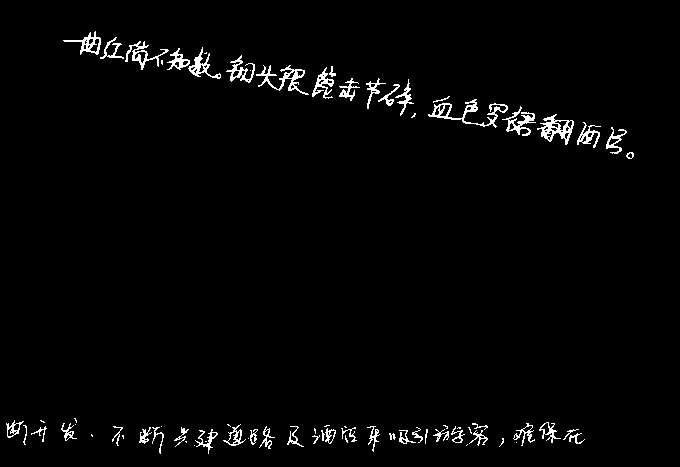 一曲红绡不知数。钿头银篦击节碎，血色罗裙翻酒污。
断开发、不断兴建道路及酒店来吸引游客，确保在